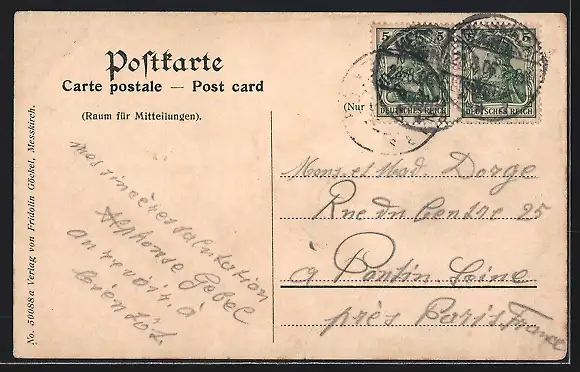 Postkarte
Carte postale — Post card
(Raum für Mitteilungen).
(Nur
5 5
DEUTSCHES REICH DEUTSCHES REICH
mes sincères salutation
Alphonse Gebel
au revoir à
bientôt
Mons et Mad Dorge
Rue du Centre 25
à Pantin Seine
près Paris France
No. 50088a Verlag von Fridolin Göckel, Messkirch.